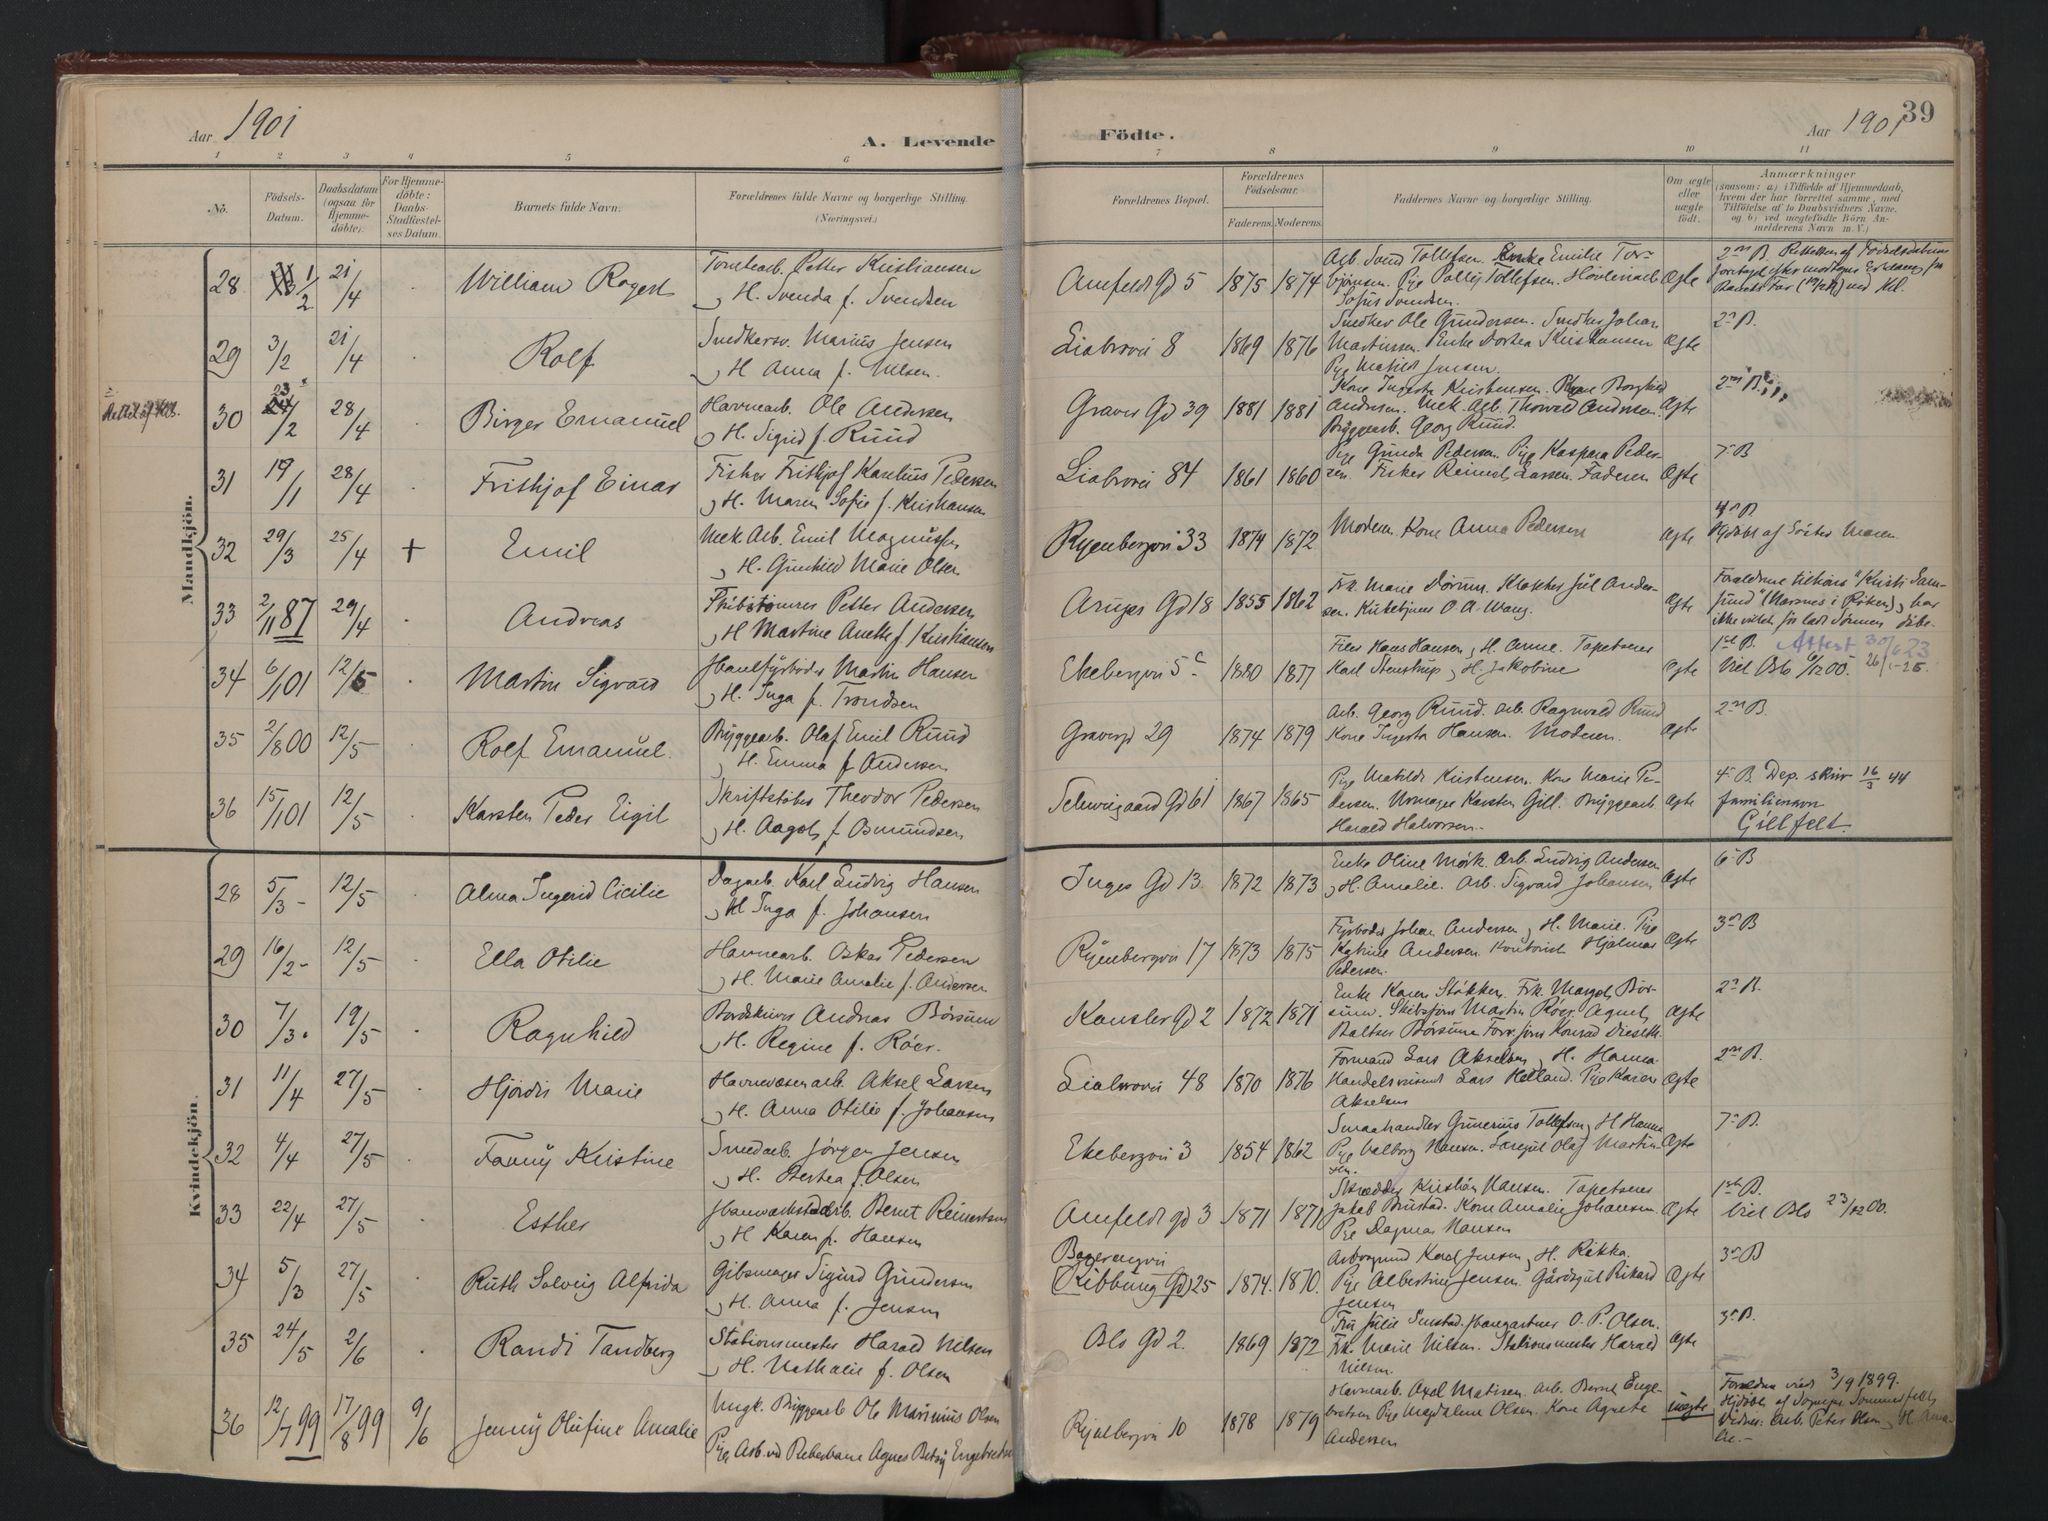 Aar 1901
A. Levende
1 2 3 4 5 6
No.
Födsels-
Datum.
Daabsdatum
(ogsaa for
Hjemme-
döbte).
For Hjemme-
döbte:
Daabs-
Stadfæstel-
ses Datum.
Barnets fulde Navn.
Forældrenes fulde Navne og borgerlige Stilling.
(Næringsvei.)
Mandkjön.
28 1/2 21/4 William Ragert
Petter Kristiansen
H. Svenda f. Svendsen
29 3/2 21/4 Rolf
Snedkersv. Marius Jensen
H. Anna f. Nilsen.
30 23/2 28/4 Birger Emanuel
Havnearb. Ole Andersen
H. Sigrid f. Ruud
31 19/1 28/4 Frithjof Einar
Fisker Frithjof Karelius Pedersen
H. Maren Sofie f. Kristiansen
32 29/3 25/4 + Emil
Mek. Arb. Emil Magnussen
H. Gunhild Marie Olsen
33 2/11 87 29/4 Andreas
Petter Andersen
H. Martine Anette f. Kristiansen
34 6/1 01 12/5 Martin Sigvard
Martin Hansen
H. Inga f. Trondsen
35 2/8 00 12/5 Rolf Emanuel.
Bryggearb. Olaf Emil Ruud
H. Emma f. Andersen
36 15/1 01 12/5 Karsten Peder Eigil
Skriftstøber Theodor Pedersen
H. Aagot f. Osmundsen
Kvindekjön.
28 5/3 12/5 Alma Ingerid Cicilie
Dagarb. Karl Ludvig Hansen
H. Inga f. Johansen
29 16/2 12/5 Ella Otilie
Havnearb. Oskar Pedersen
H. Marie Amalie f. Andersen
30 7/3 19/5 Ragnhild
Andreas Börsum
H. Regine f. Röer.
31 11/4 27/5 Hjördis Marie
Havnevæsenarb. Aksel Larsen
H. Anna Otilie f. Johansen
32 4/4 27/5 Fanny Kristine
Smedarb. Jörgen Jensen
H. Bertea f. Olsen
33 22/4 27/5 Esther
Bernt Reinertsen
H. Karen f. Hansen
34 5/3 27/5 Ruth Solveig Alfrida
Gibsmager Sigurd Gundersen
H. Anna f. Jensen
35 24/5 2/6 Randi Tandberg
Stationsmester Harald Nilsen
H. Nathalie f. Olsen
36 12/7 99 17/8 99 9/6 Jenny Olufine Amalie
Ungk. Bryggearb. Ole Marinius Olsen
Pige Arb. ved Reberbane Agnes Betsy Engebretsen
39
Födte.
Aar 1901
7 8 9 10 11
Forældrenes Bopæl.
Forældrenes
Födselsaar.
Faderens. Moderens.
Faddernes Navne og borgerlige Stilling.
Om ægte
eller
uægte
födt.
Anmærkninger
(saasom: a) i Tilfælde af Hjemmedaab,
hvem der har forrettet samme, med
Tilföielse af to Daabsvidners Navne,
og b) ved uægtefödte Börn An-
melderens Navn m. V.)
Amfeldt Gd 5 1875 1874
Arb. Svend Tollefsen. Enke Emilie Tor-
björnsen. Pige Tollefsen. Høvleriarb.
Sofus Svendsen.
Ægte
2den B.
Liabrovei 8 1869 1876
Snedker Ole Gundersen. Snedker Johan
Martinsen. Enke Dortea Kristiansen
Pige Matild Jensen.
Ægte 2den B.
Graver Gd 39 1881 1881
Kone Ingerta Kristensen. Kone Borghild
Andersen. Mek. Arb. Thorvald Andersen.
Bryggearb. Georg Ruud.
Ægte 2den B.
Liabrovei 84 1861 1860
Pige Gunda Pedersen. Pige Kaspara Peder-
sen. Fisker Reinert Larsen. Faderen
Ægte 7de B
Ryenbergvei 33 1874 1872
Moderen. Kone Anna Pedersen
Ægte 4de B
Hjdöbt af Maren
Arups Gd 18 1855 1862
Frk. Marie Klokker Jul Ander-
sen. Kirketjener O. A. Wang.
Ægte
Forældrene tilhører "Kristi Sam-
fund" (Narsnes i Röken), har
ikke villet før ladt Sønnen döbe.
Ekebergvei 5c 1880 1877
Hans Hansen, H. Anne. Tapetserer
Karl Stenstrup, H. Jakobine
Ægte 1ste B. Attest 30/6 23
Viet Oslo 9/12 00. 26/1-25.
Gravergd 29 1874 1879
Arb. Georg Ruud. Arb. Ragnvald Ruud
Kone Ingerta Hansen. Moderen.
Ægte 2den B.
Schweigaard Gd 61 1867 1865
Pige Matilde Kristensen. Kone Marie Pe-
dersen. Urmager Karsten Gill. Bryggearb.
Harald Halvorsen.
Ægte 4de B. Dep. skriv 16/3 44
familienavn
Gillfelt.
Inges Gd 13. 1872 1873
Enke Oline Mörk. Arb. Ludvig Andersen
H. Amalie. Arb. Sigvard Johansen
Ægte 6te B
Ryenbergvei 17 1873 1875
Fyrböder Johan Andersen, H. Marie. Pige
Katrine Andersen. Kontorist Hjalmar
Pedersen.
Ægte 3die B
Kansler Gd 2 1872 1871
Enke Karen Stökken. Frk. Margot Bör-
sum. Martin Röer. Agent
Baltser Börsum. Konrad
Ægte 2den B.
Liabrovei 48 1870 1876
Formand Lars Akselsen, H. Hanna.
Handelsreisend Lars Helland. Pige Karen
Akselsen
Ægte 2den B.
Ekebergvei 3 1854 1862
Smaahandler Gunerius Tollefsen, H. Hanna
Pige Valborg Hansen. Olaf Martin-
sen.
Ægte 7de B.
Amfeldt Gd 3 1871 1871
Skrædder Kristian Hansen. Tapetserer
Jakob Brustad. Kone Amalie Johansen.
Pige Dagmar Hansen
Ægte 1ste B.
Viet Oslo 23/12 00.
(Ribbung Gd) 25 1874. 1870.
Karl Jensen, H. Rikka.
Pige Albertine Jensen. Gårdsgut Rikard
Jensen
Ægte 3die B
Oslo Gd 2. 1869 1872
Fru Julie O. P. Olsen.
Frk. Marie Nilsen. Stationsmester Harald
Nilsen
Ægte 3die B.
Ryenbergvei 10 1878 1879
Havnearb. Axel Matisen. Arb. Bernt Enge-
bretsen. Pige Magdalene Olsen. Kone Agnete
Andersen
uægte
Forældre viet 3/9 1899.
Hjdöbt af Sognepr. Sommerfeldt
Vidner: Arb. Peter Olsen, H. Ama-
lie.-